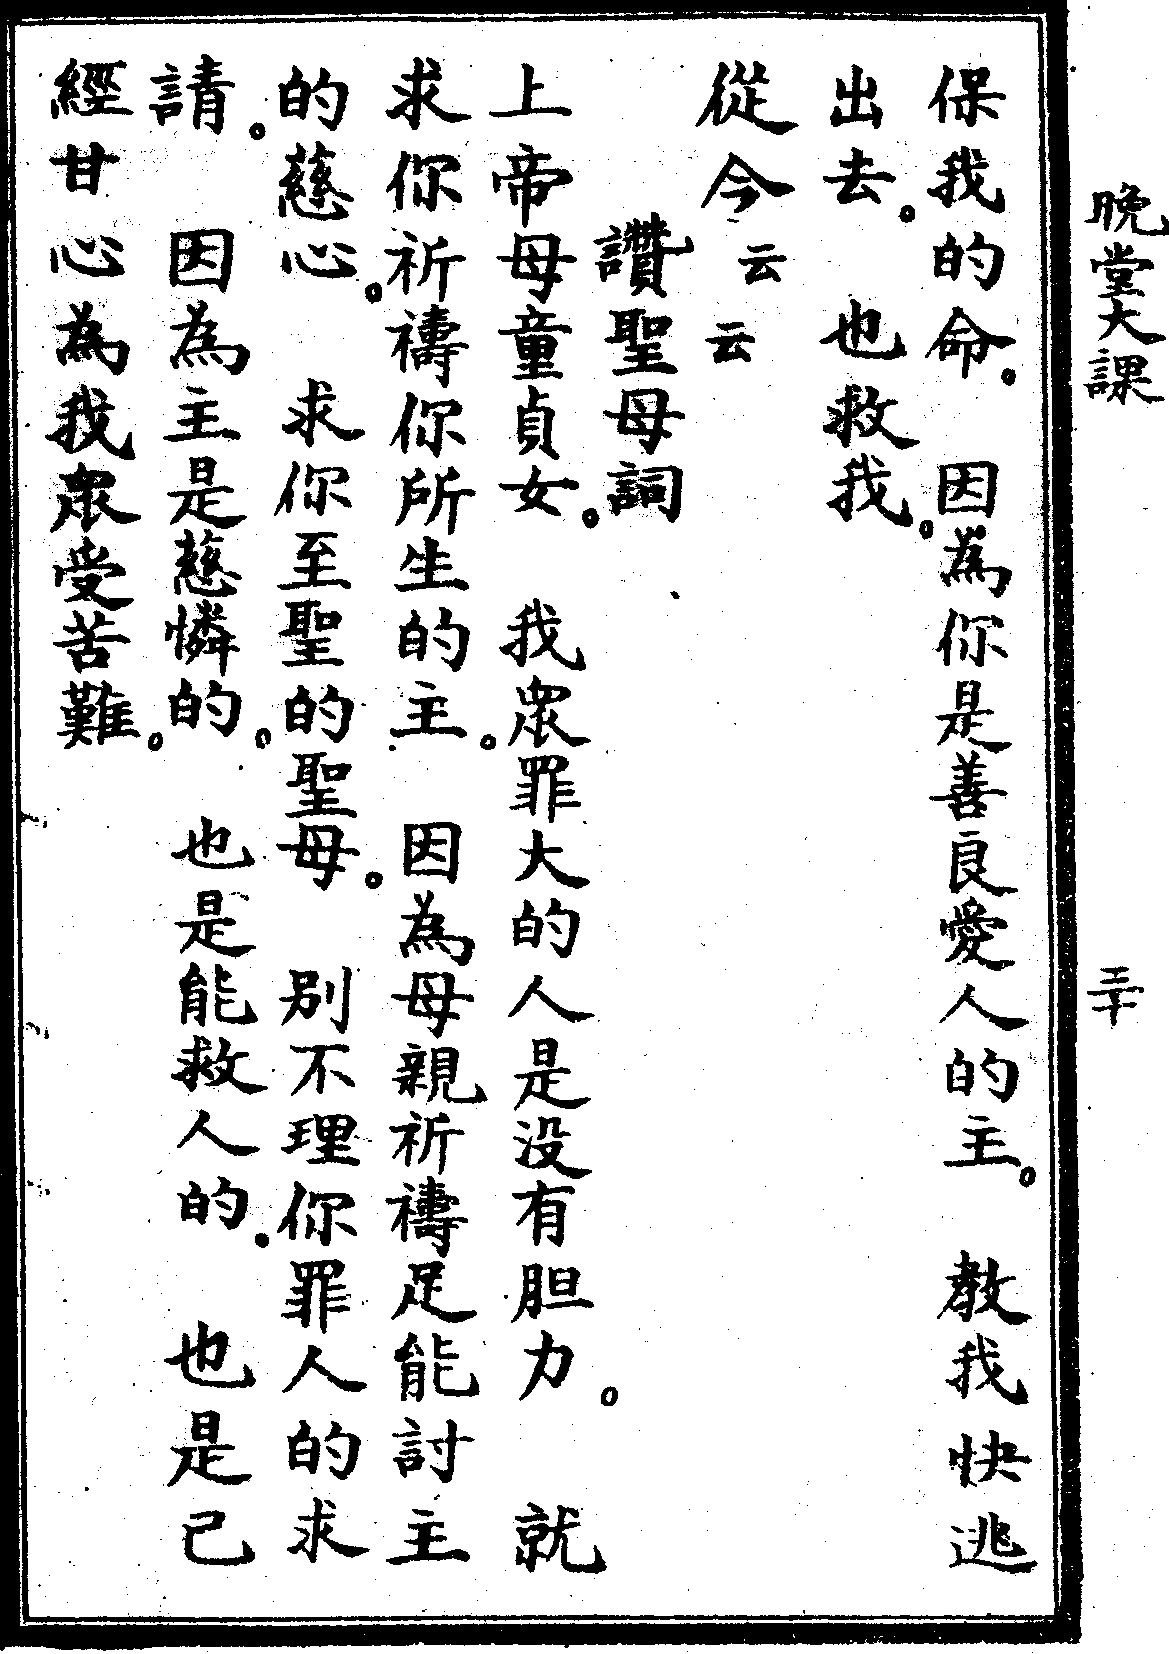 晚堂大課
三十
保我的命。因為你是善良愛人的主。教我快逃
出去。也救我。
從今云云
讚聖母詞
上帝母童貞女。我眾罪大的人是没有胆力。就
求你祈禱你所生的主。因為母親祈禱足能討主
的慈心。求你至聖的聖母。别不理你罪人的求
請。因為主是慈憐的。也是能救人的。也是已
經甘心為我眾受苦難。